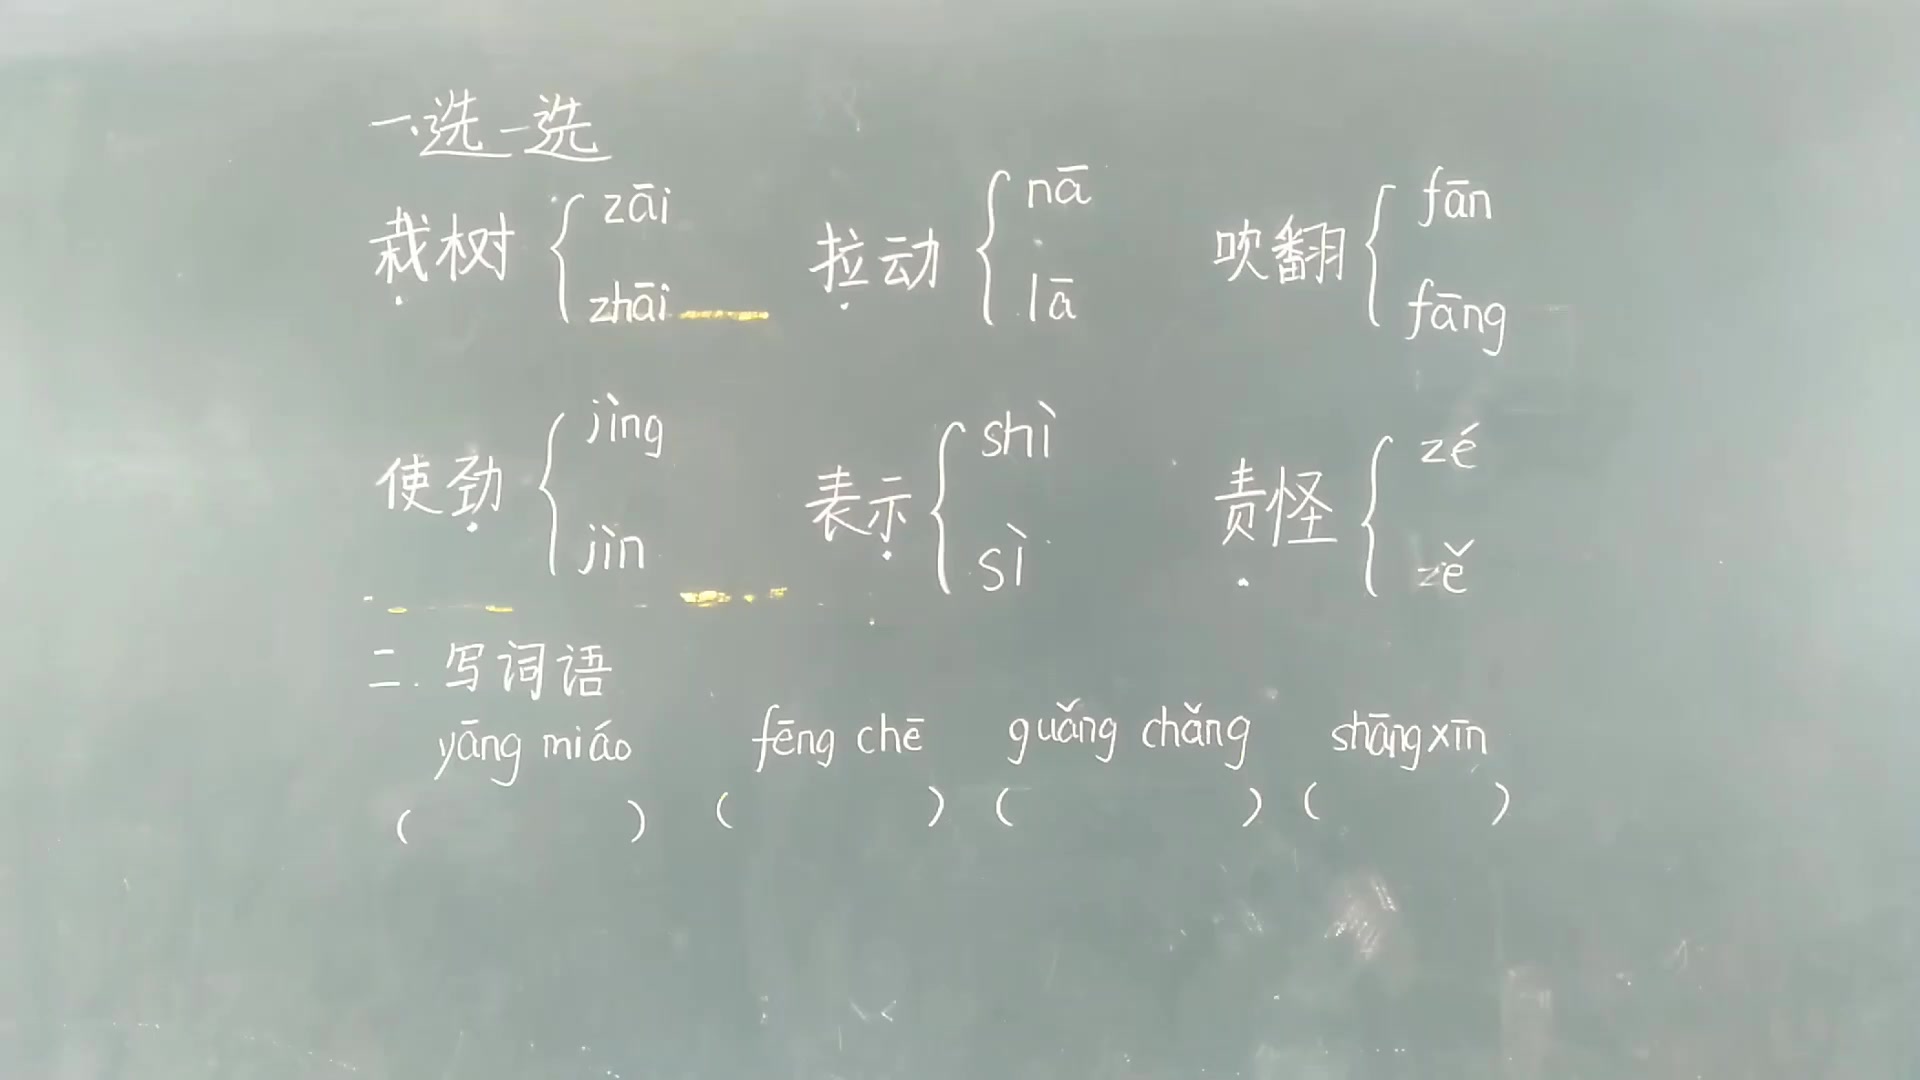 一.选一选
zāi nā fān
栽树 { 拉动 { 吹翻 {
zhāi lā fāng
jìng shì zé
使劲 { 表示 { 责怪 {
jìn sì zě
二.写词语
yāng miáo fēng chē guǎng chǎng shāng xīn
( ) ( ) ( ) ( )